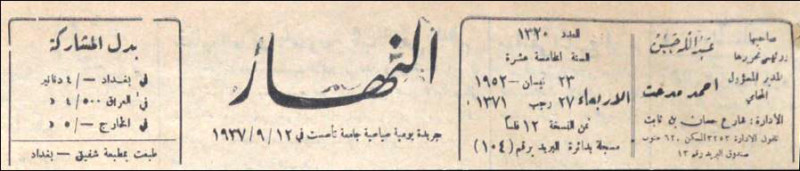 صاحبها
ورئيس تحريرها
عبد الله حسن
المدير المسؤول
المحامي
احمد مدحت
الادارة: شارع حسان بن ثابت
تلفون الادارة ٣٢٥٢ السكن ٦٢٠ جنوب
صندوق البريد رقم ١٣
العدد ١٣٢٠
السنة الخامسة عشرة
٢٣ نيسان – ١٩٥٢
الاربعاء ٢٧ رجب ١٣٧١
ثمن النسخة ١٢ فلسا
مسجلة بدائرة البريد برقم (١٠٤)
النهار
جريدة يومية سياسية جامعة تأسست في ١٢/٩/١٩٣٧
بدل المشاركة
في بغداد –/٤ دنانير
في العراق ٥٠٠/٤ د
في الخارج –/٥ د
طبعت بمطبعة شفيق – بغداد